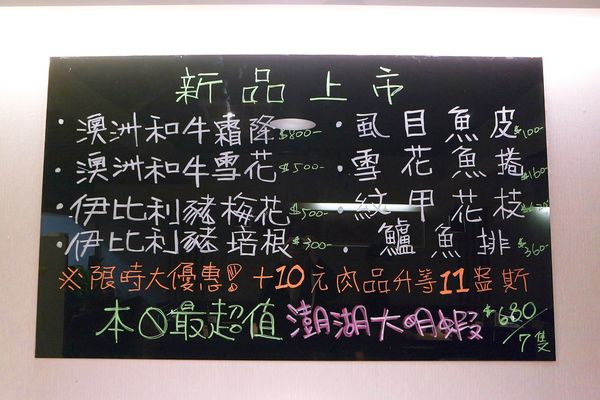 新品上市
・澳洲和牛霜降$800-
・虱目魚皮$100-
・澳洲和牛雪花$500-
雪花魚捲$160-
・伊比利豬梅花$500-
・紋甲花枝
・伊比利豬培根$300-
・鱸魚排$360-
※限時大優惠!+10元肉品升等11盎斯
本日最超值澎湖大明蝦$680/7隻